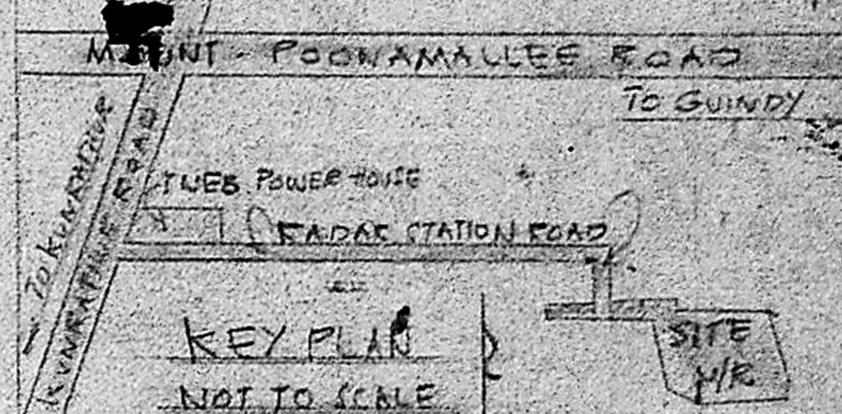 MOUNT - POONAMALLEE ROAD
TO GUINDY
TO KUNRATHUR
KUNRATHUR ROAD
TNEB POWER HOUSE
RADAR STATION ROAD
KEY PLAN
NOT TO SCALE
SITE
U/R